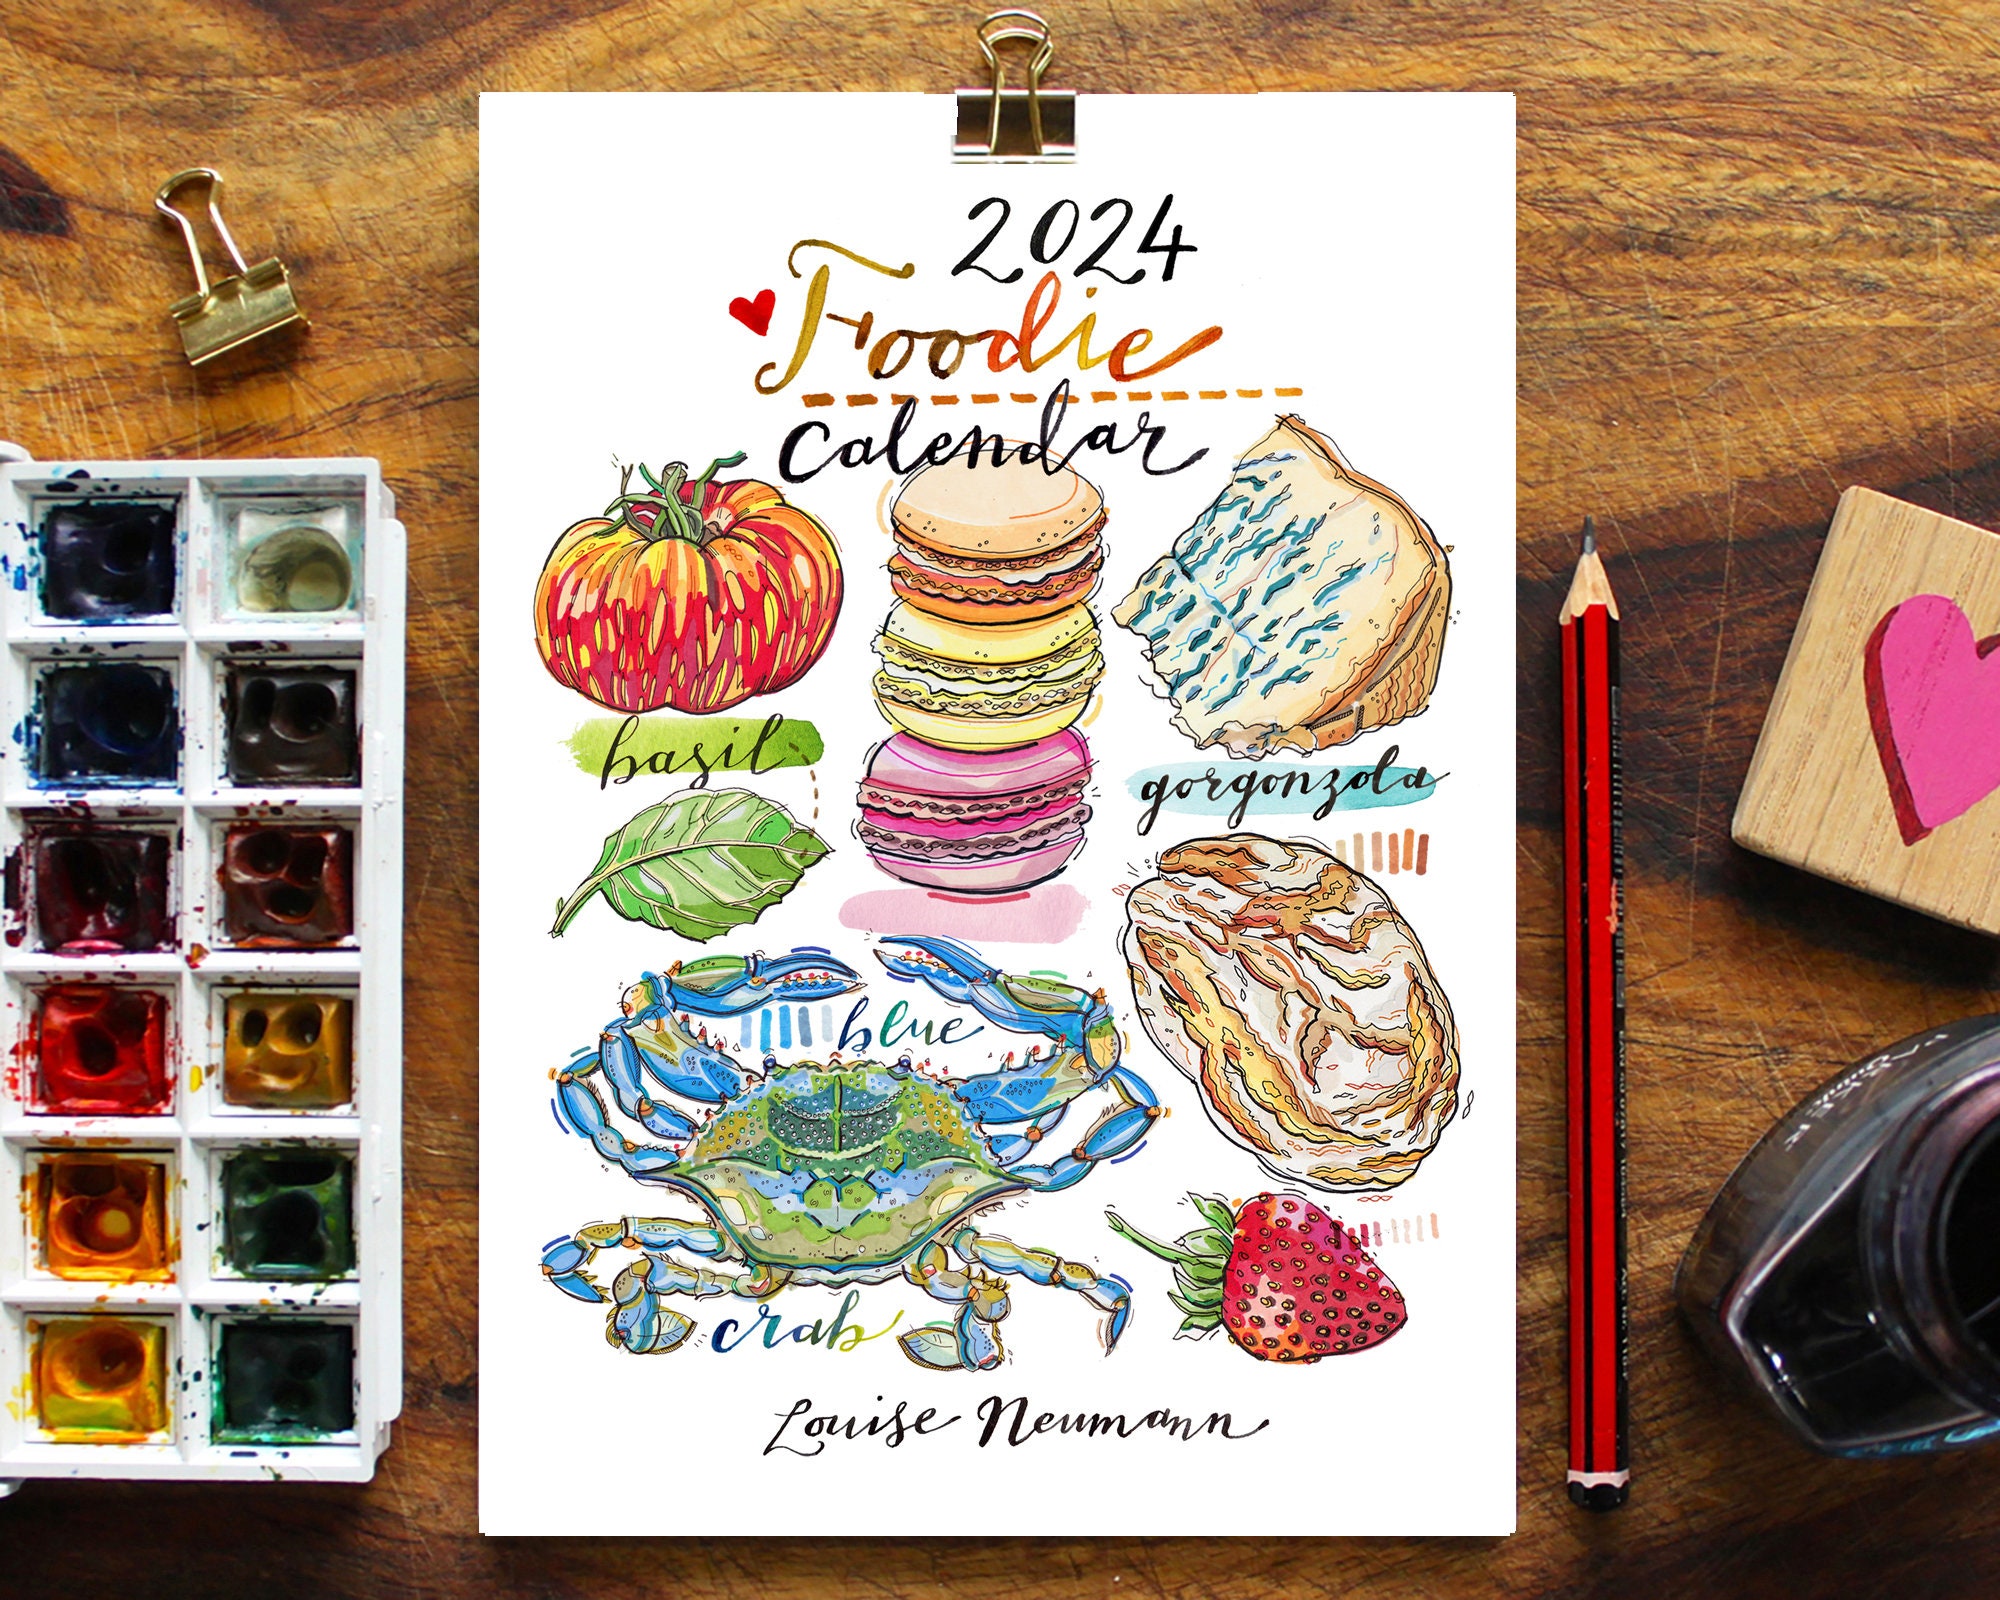 2024
Foodie
Calendar
basil
gorgonzola
blue
crab
Louise Neumann